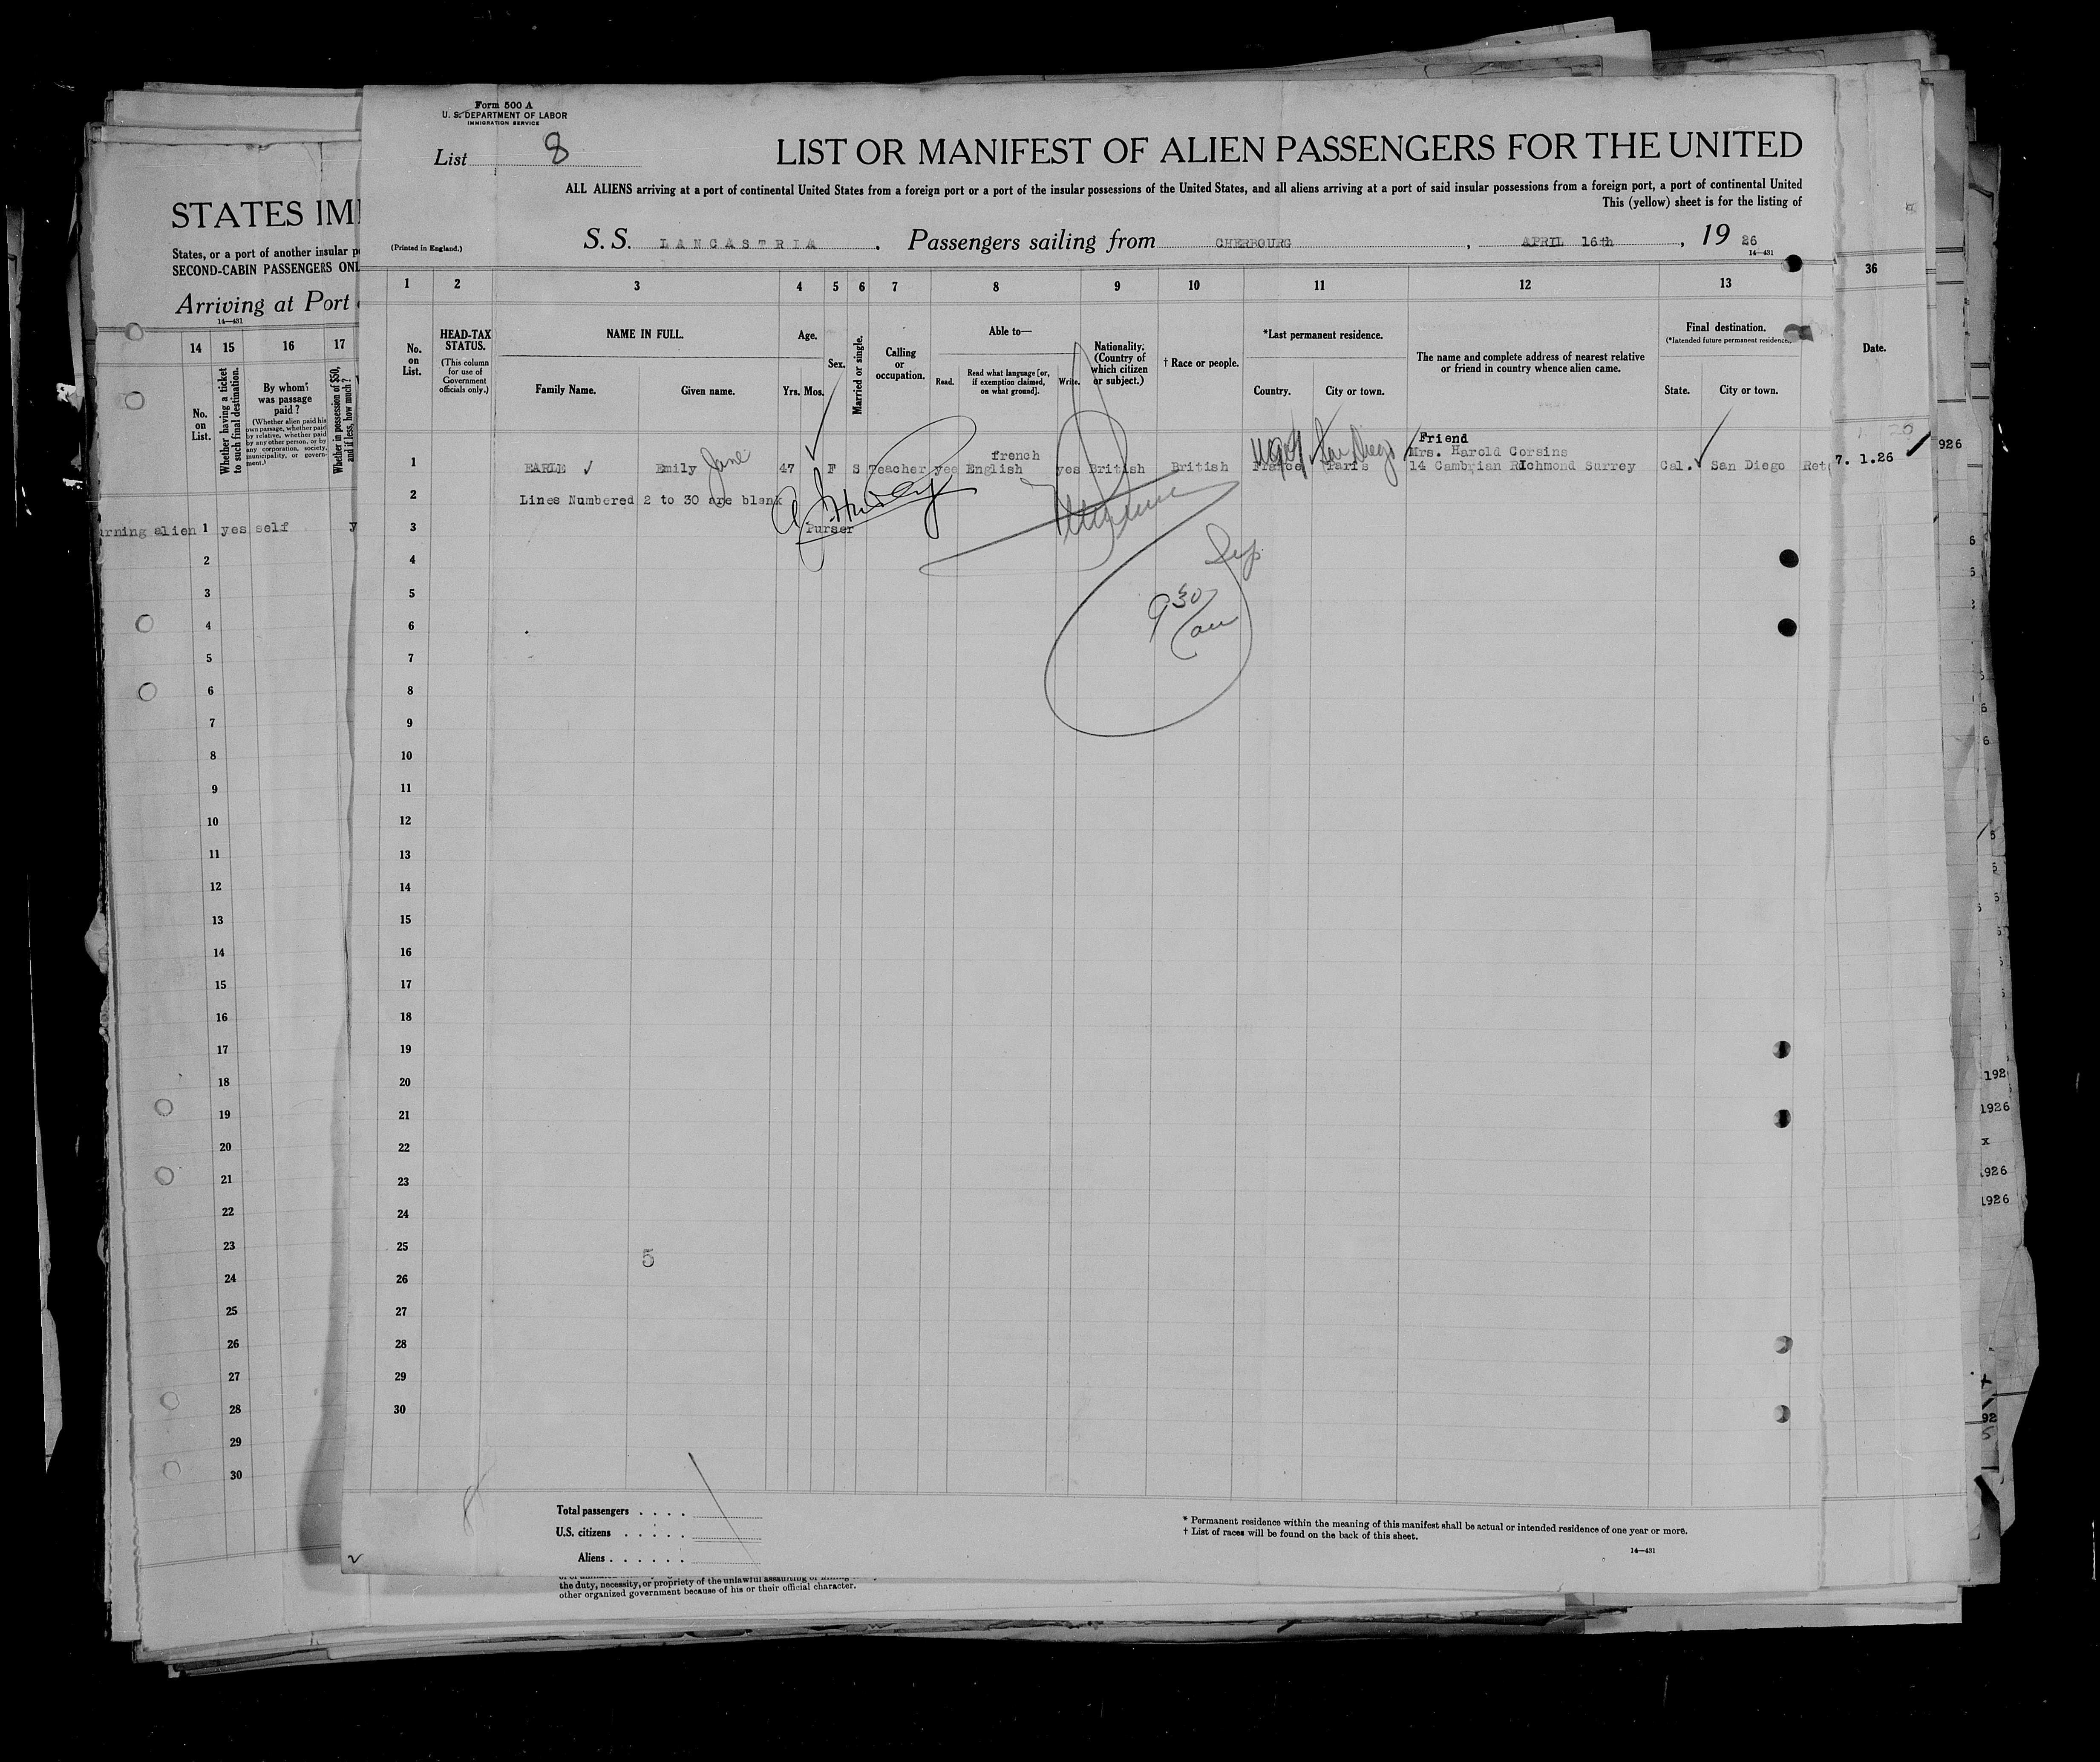 Form 500 A
U. S. DEPARTMENT OF LABOR
IMMIGRATION SERVICE
List 8
LIST OR MANIFEST OF ALIEN PASSENGERS FOR THE UNITED
ALL ALIENS arriving at a port of continental United States from a foreign port or a port of the insular possessions of the United States, and all aliens arriving at a port of said insular possessions from a foreign port, a port of continental United
This (yellow) sheet is for the listing of
(Printed in England.)
S. S. LANCASTRIA. Passengers sailing from CHERBOURG, APRIL 16th, 19 26
14—431
1 2 3 4 5 6 7 8 9 10 11 12 13
No. on List.
HEAD-TAX STATUS.
(This column for use of Government officials only.)
NAME IN FULL.
Family Name. Given name.
Age.
Yrs. Mos.
Sex.
Married or single.
Calling or occupation.
Able to—
Read. Read what language [or, if exemption claimed, on what ground]. Write.
Nationality. (Country of which citizen or subject.)
† Race or people.
*Last permanent residence.
Country. City or town.
The name and complete address of nearest relative or friend in country whence alien came.
Final destination.
(*Intended future permanent residence.)
State. City or town.
Friend
french San Diego Mrs. Harold Corsins
1 EARLE ✓ Emily Jane 47 F S Teacher yes English yes British British France Paris 14 Cambrian RIchmond Surrey Cal. ✓ San Diego Ret
2 Lines Numbered 2 to 30 are blank
3 Purser
4
5
9 30 am
6
7
8
9
10
11
12
13
14
15
16
17
18
19
20
21
22
23
24
25
5
26
27
28
29
30
8
Total passengers . . . .
U.S. citizens . . . . .
Aliens . . . . . .
* Permanent residence within the meaning of this manifest shall be actual or intended residence of one year or more.
† List of races will be found on the back of this sheet.
14—431
the duty, necessity, or propriety of the unlawful assaulting or
other organized government because of his or their official character.
STATES IM
States, or a port of another insular p
SECOND-CABIN PASSENGERS ONL
Arriving at Port
14—431
14 15 16 17
No. on List.
Whether having a ticket to such final destination.
By whom was passage paid?
(Whether alien paid his own passage, whether paid by relative, whether paid by any other person, or by any corporation, society, municipality, or government.)
Whether in possession of $50, and if less, how much?
urning alien 1 yes self y
2
3
4
5
6
7
8
9
10
11
12
13
14
15
16
17
18
19
20
21
22
23
24
25
26
27
28
29
30
36
Date.
7. 1.26
926
192
1926
x
1926
1926